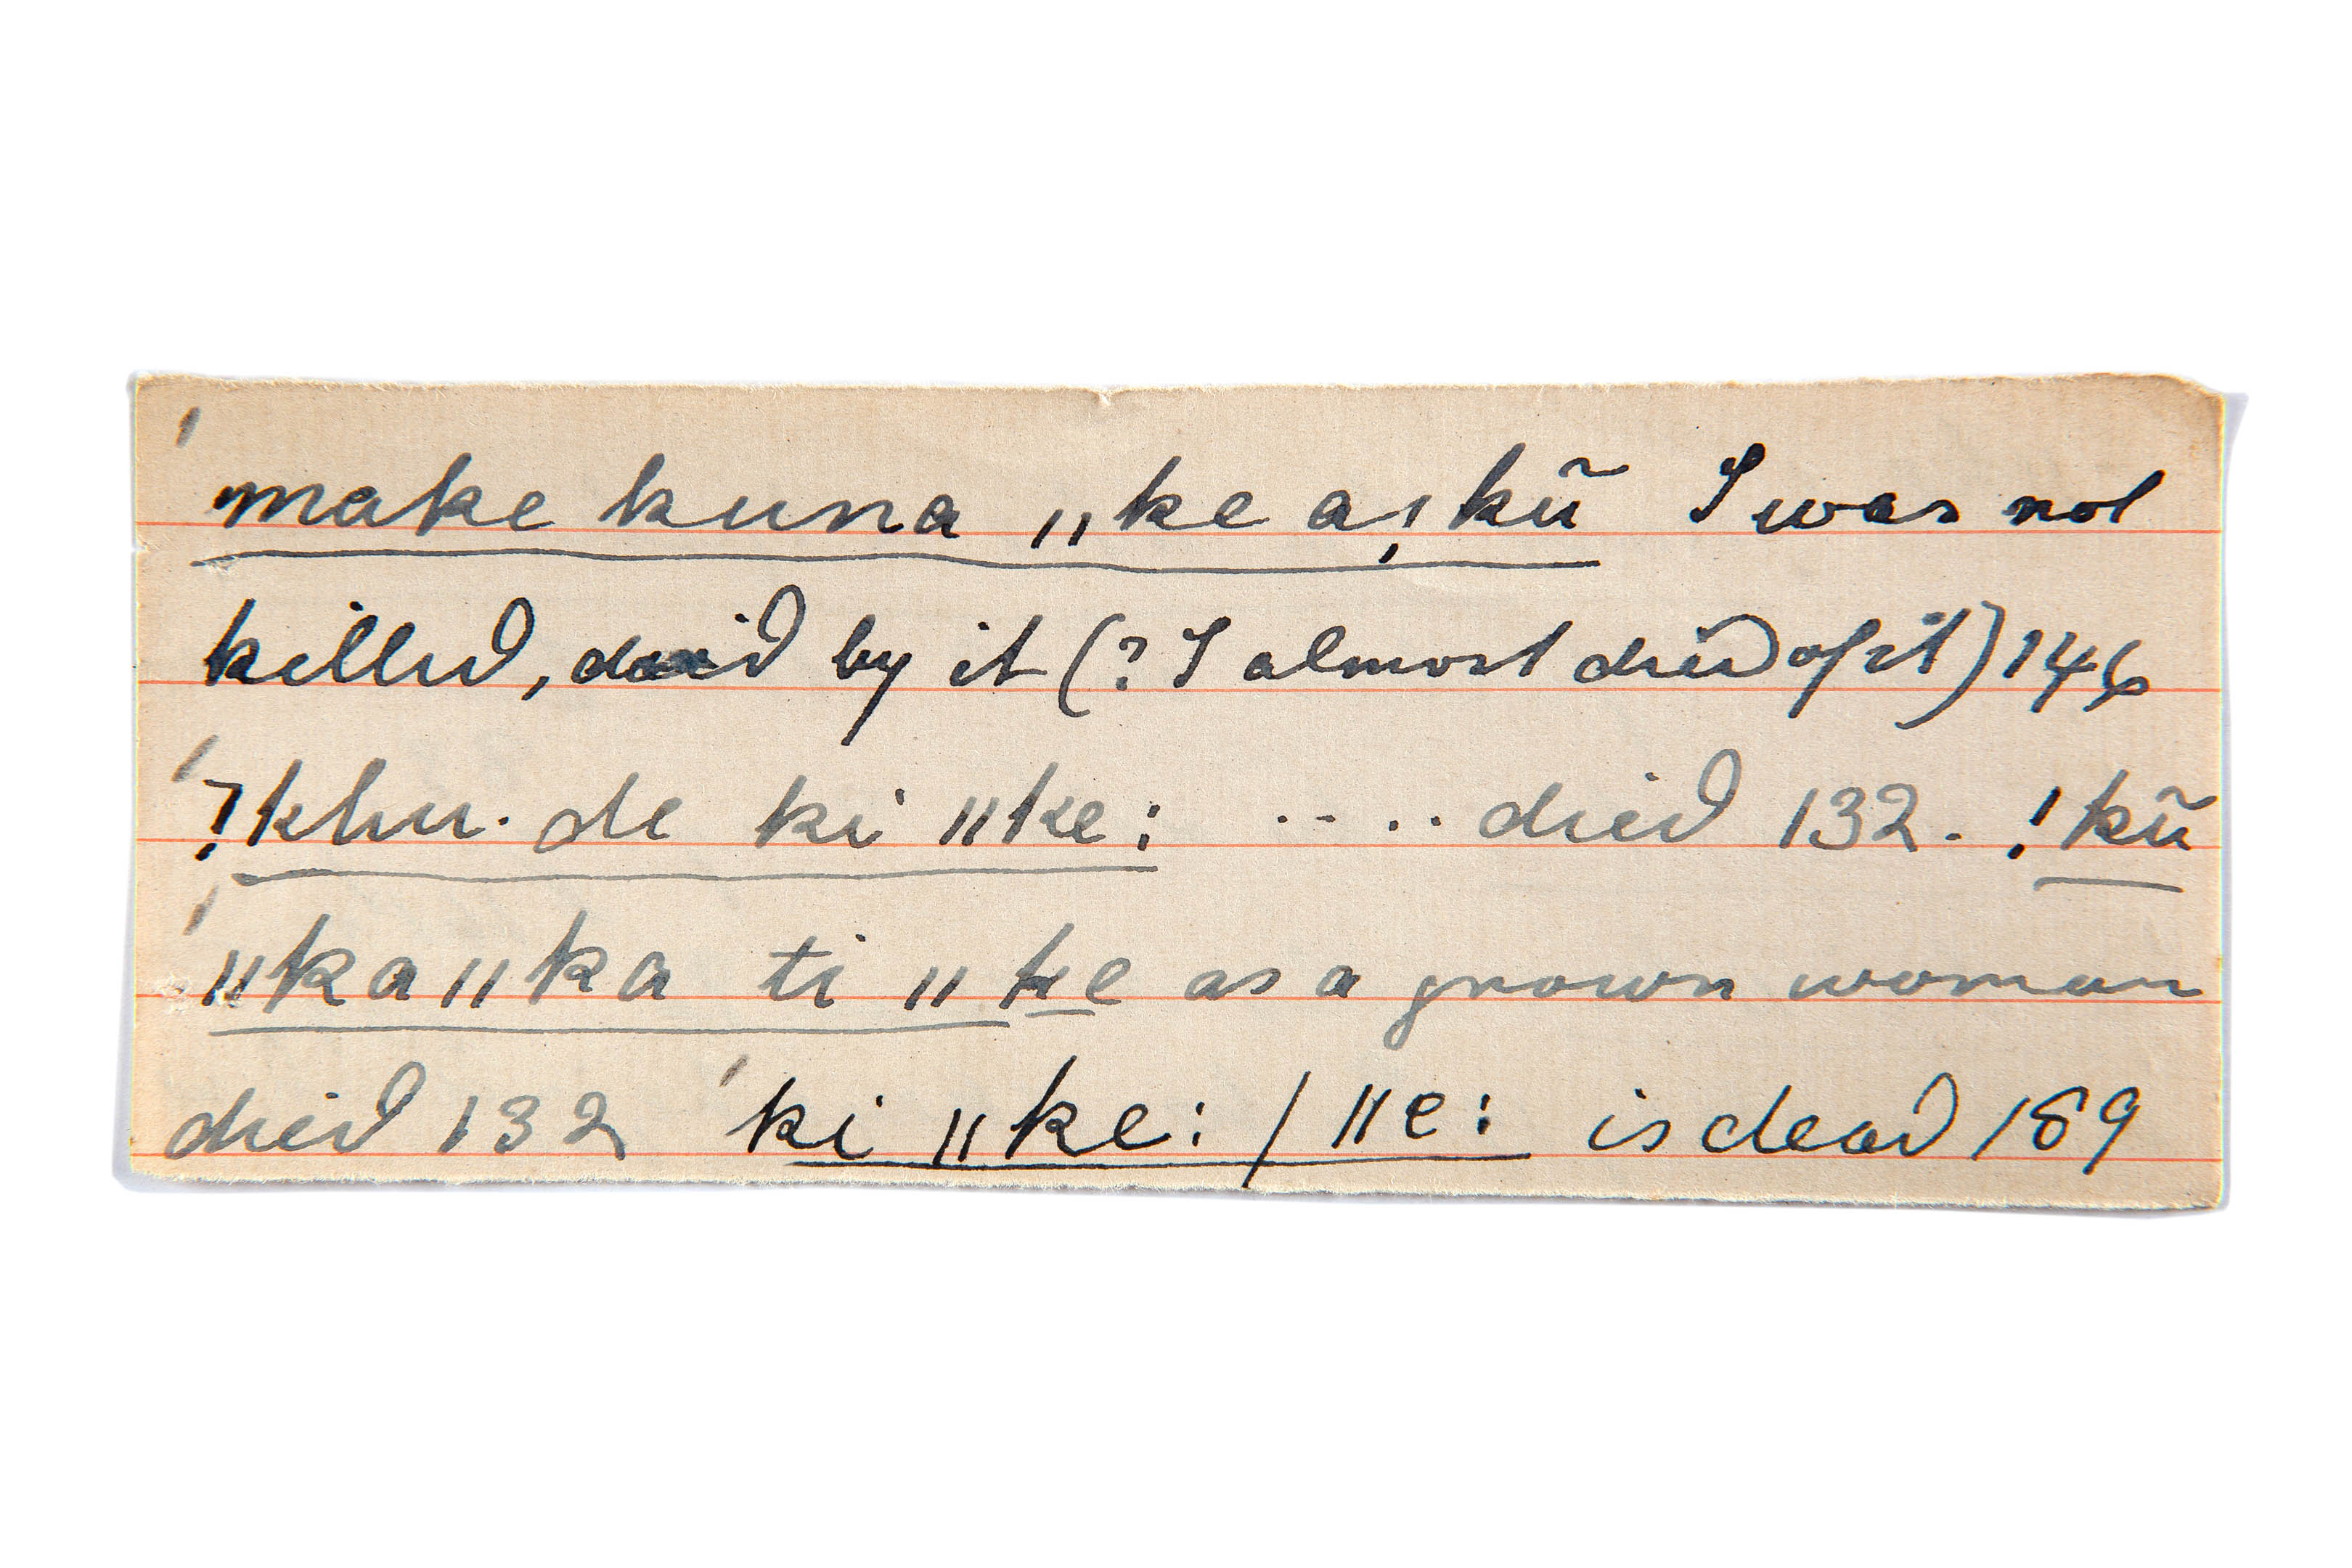 make kuna ǁke a ǃkũ I was not
killed, died by it (? I almost died of it) 146
ǃkhu. de ki ǁke: .... died 132. ǃkũ
ǁka ǁka ti ǁke as a grown woman
died 132 ki ǁke: / ǁe: is dead 189